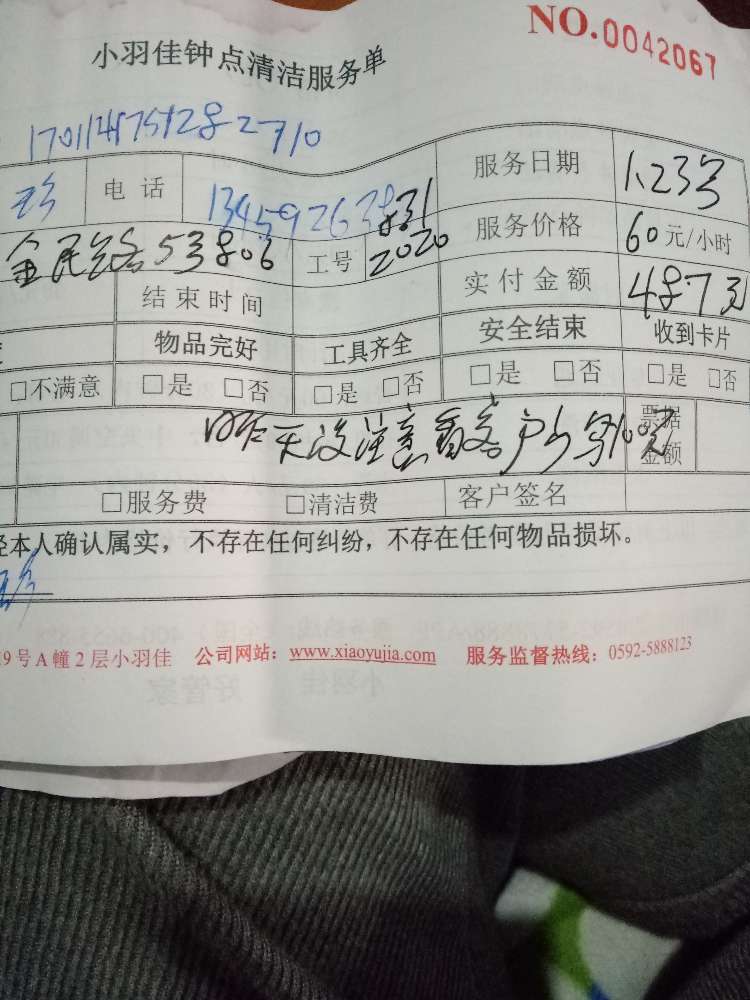 NO.0042067
小羽佳钟点清洁服务单
电话 服务日期 1.23号
服务价格 60元/小时
金民路53806 工号 2020
结束时间 实付金额 487元
物品完好 工具齐全 安全结束 收到卡片
□不满意 □是 □否 □是 □否 □是 □否 □是 □否
昨天没注意看客户少写10元 票据金额
□服务费 □清洁费 客户签名
经本人确认属实，不存在任何纠纷，不存在任何物品损坏。
9号A幢2层小羽佳 公司网站：www.xiaoyujia.com 服务监督热线：0592-5888123